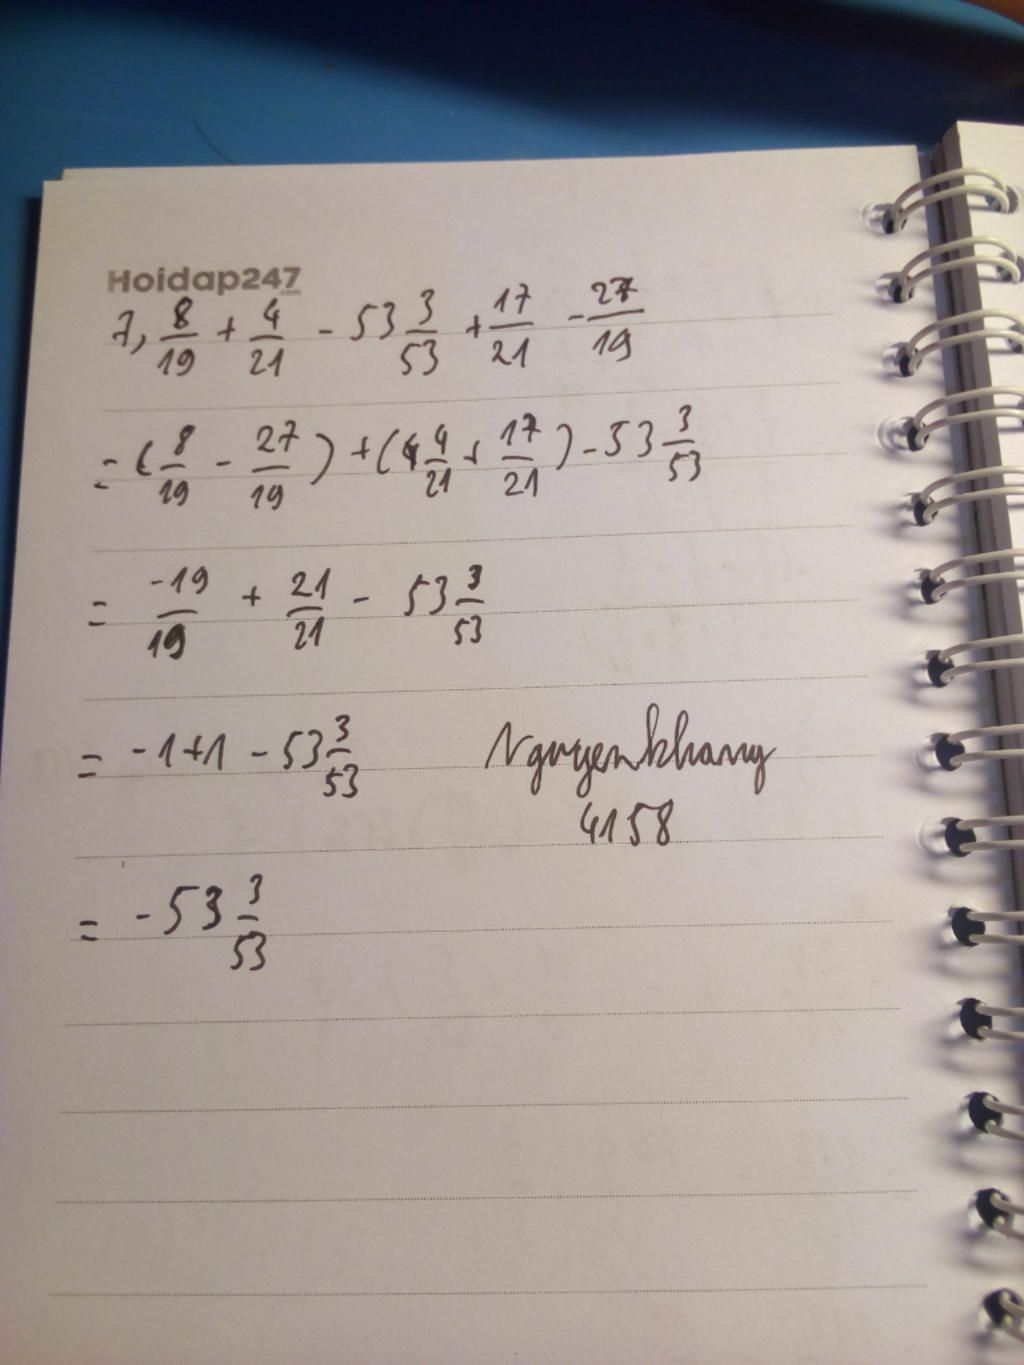 Hoidap247
7, 8/19 + 4/21 - 53 3/53 + 17/21 - 27/19
= (8/19 - 27/19) + (4/21 + 17/21) - 53 3/53
= -19/19 + 21/21 - 53 3/53
= -1+1 - 53 3/53 Nguyenkhang
4158
= -53 3/53